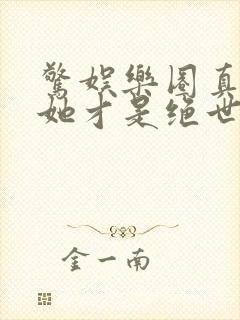 驚娛樂圈真
她才是絕世
金一南